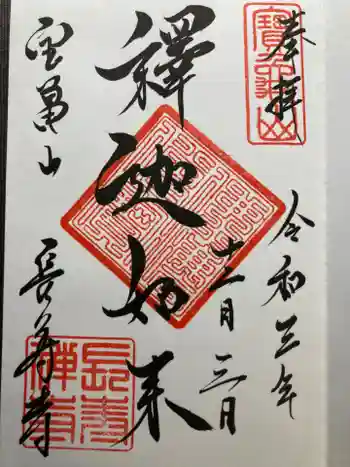 奉拝
令和三年
十二月三日
釋迦如来
宝亀山
長寿寺
寶亀山
長壽禅寺